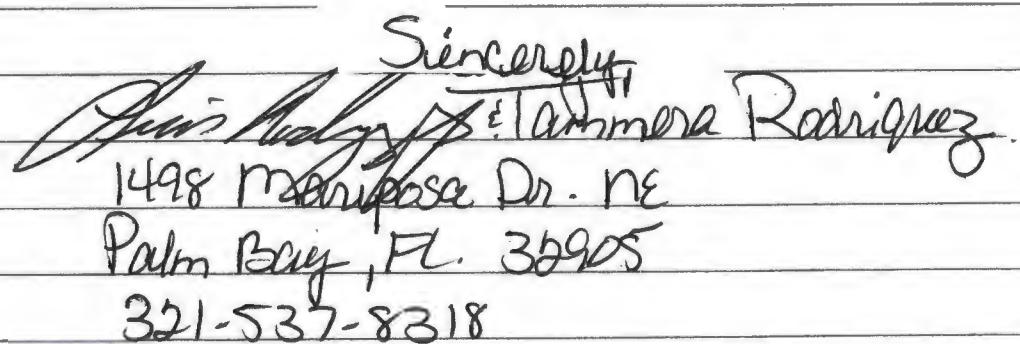 Siencerely,
& Tammera Rodriguez
1498 Mariposa Dr. NE
Palm Bay, FL. 32905
321-537-8318